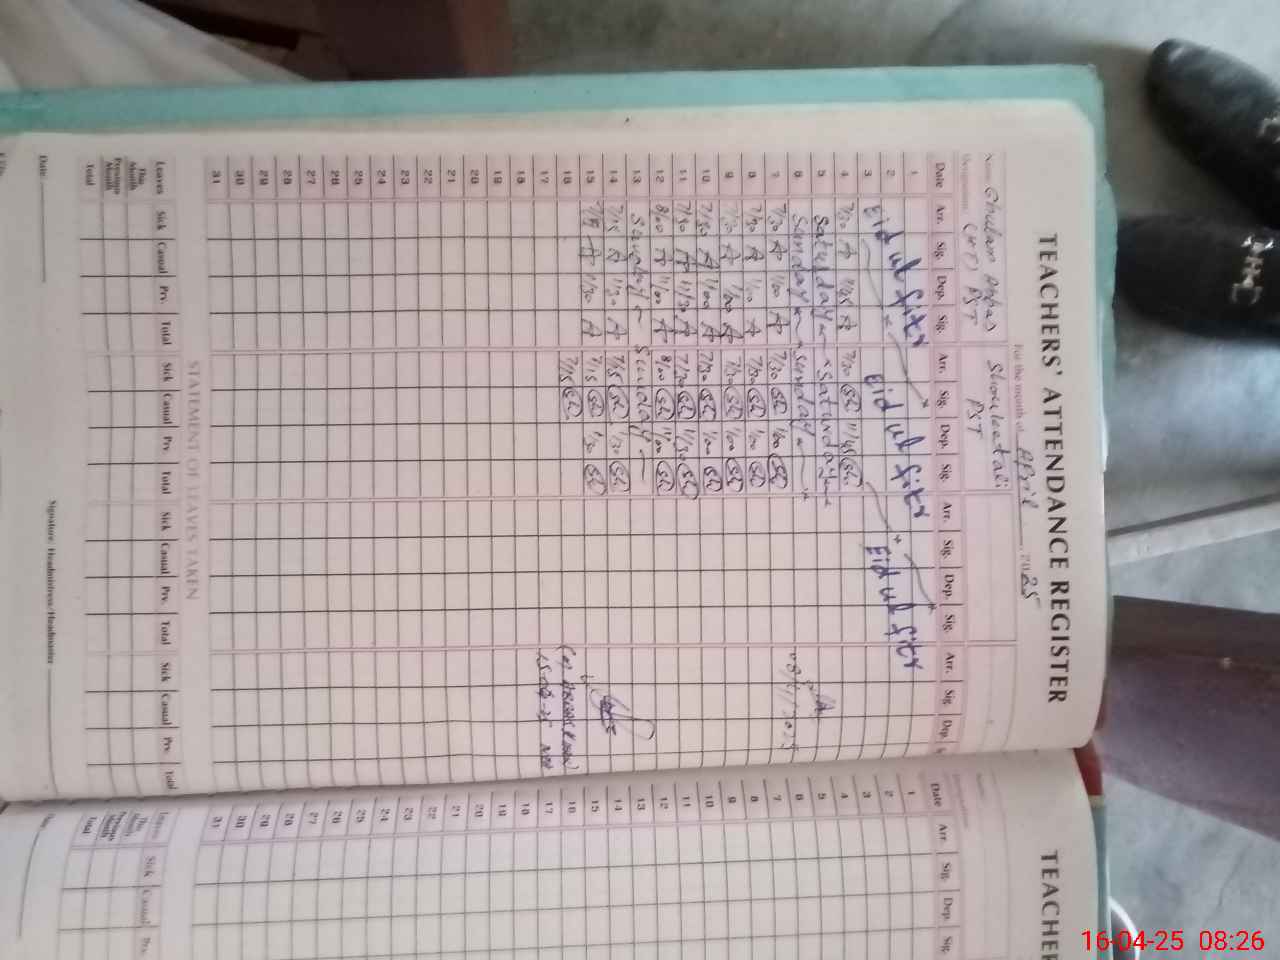 TEACHERS' ATTENDANCE REGISTER
For the month of April 2025
Name Ghulam Abbas Shoukeetali
Designation (HT) PST PST
Date Arr. Sig. Dep. Sig. Arr. Sig. Dep. Sig. Arr. Sig. Dep. Sig. Arr. Sig. Dep.
1
2 Eid ul fitr Eid ul fitr Eid ul fitr
3
4 7/30 A 11/45 A 7/30 Sh 11/45 Sh
5 Saturday Saturday
6 Sunday Sunday
7 7/30 A 1/00 A 7/30 Sh 1/00 Sh
8 7/30 A 1/00 A 7/30 Sh 1/00 Sh
9 7/30 A 1/00 A 7/30 Sh 1/00 Sh
10 7/30 A 1/00 A 7/30 Sh 1/00 Sh
11 7/30 A 11/30 A 7/30 Sh 11/30 Sh
12 8/00 A 11/00 A 8/00 Sh 11/00 Sh
13 Sunday Sunday
14 7/15 A 1/30 A 7/15 Sh 1/30 Sh
15 7/15 A 1/30 A 7/15 Sh 1/30 Sh
16 7/15 Sh
17
18
19
20
21
22
23
24
25
26
27
28
29
30
31
STATEMENT OF LEAVES TAKEN
Leaves Sick Casual Prv. Total Sick Casual Prv Total Sick Casual Prv. Total Sick Casual Prv. Total
This Month
Previous Month
Total
Date Signature: Headmistress/Headmaster
TEACHE
Date Arr. Sig. Dep. Sig.
1
2
3
4
5
6
7
8
9
10
11
12
13
14
15
16
17
18
19
20
21
22
23
24
25
26
27
28
29
30
31
Leaves Sick Casual Prv.
This Month
Previous Month
Total
16-04-25 08:26